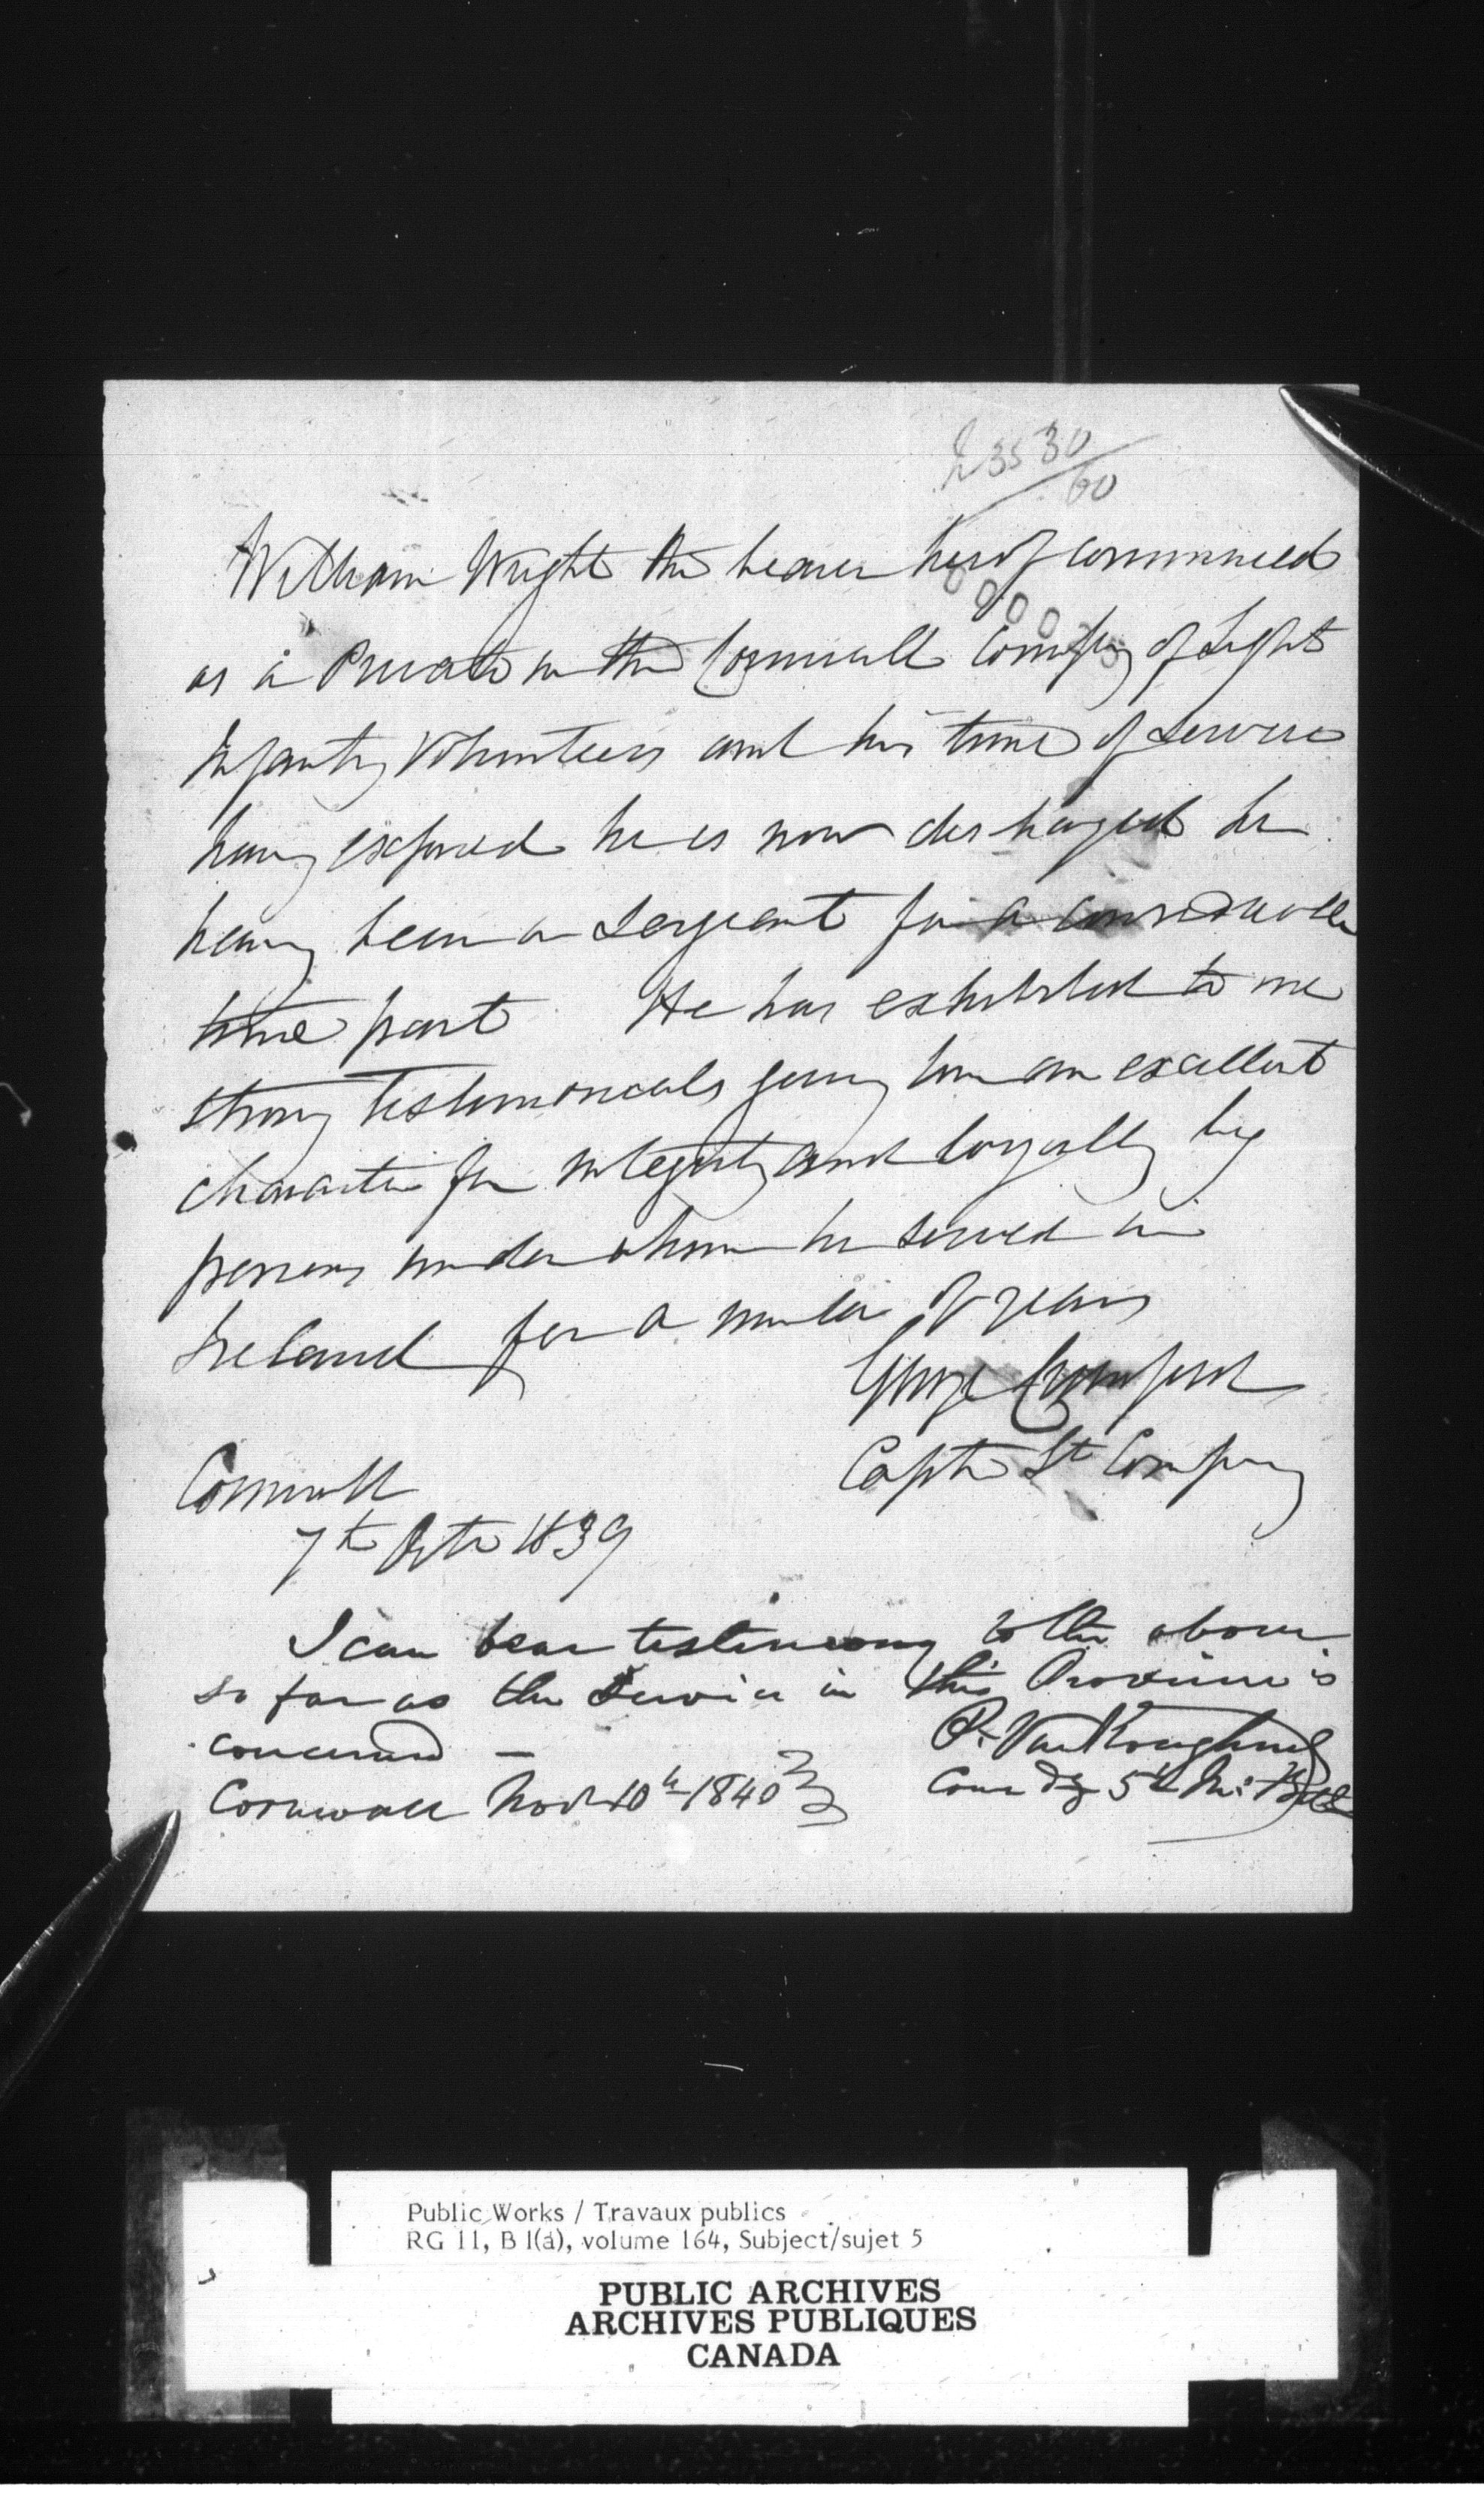 2 35 30
60
William Wright the bearer hereof commenced
as a Private in the Cornwall Company of Light
Infantry Volunteers and his time of Service
having expired he is now discharged he
having been a Sergeant for a considerable
time past He has exhibited to me
strong testimonials giving him an excellent
character for integrity and loyalty by
persons under whom he served in
Ireland for a number of years
George Crawford
Captn Lt Company
Cornwall
7th Octr 1839
I can bear testimony to the above
so far as the service in this Province is
concerned —
P. VanKoughnet
Comdg 5th
Cornwall Novr 10th 1840
Public Works / Travaux publics
RG 11, B 1(a), volume 164, Subject/sujet 5
PUBLIC ARCHIVES
ARCHIVES PUBLIQUES
CANADA